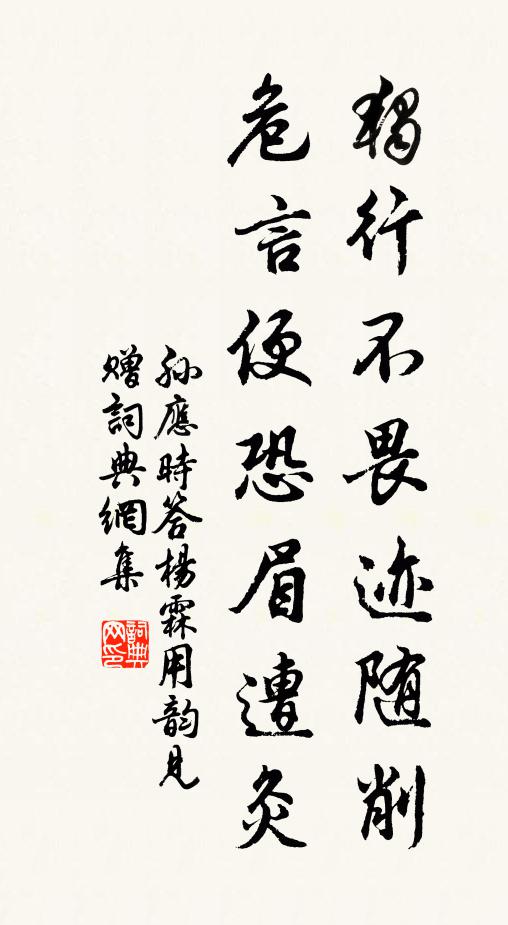 獨行不畏迹随削
危言便恐眉遭灸
孙應時答楊霖用韵見
贈詞典網集
詞典
网印